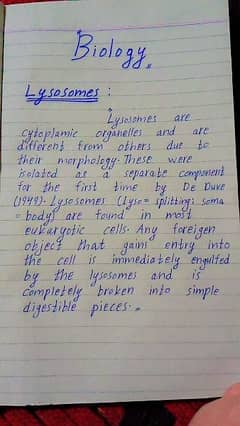 Biology
Lysosomes :
Lysosomes are
cytoplamic organelles and are
different from others due to
their morphology. These were
isolated as a separate component
for the first time by De Duve
(1949). Lysosomes (Lyso= splitting; soma
= body) are found in most
eukaryotic cells. Any foreigen
object that gains entry into
the cell is immediately engulfed
by the lysosomes and is
completely broken into simple
digestible pieces.